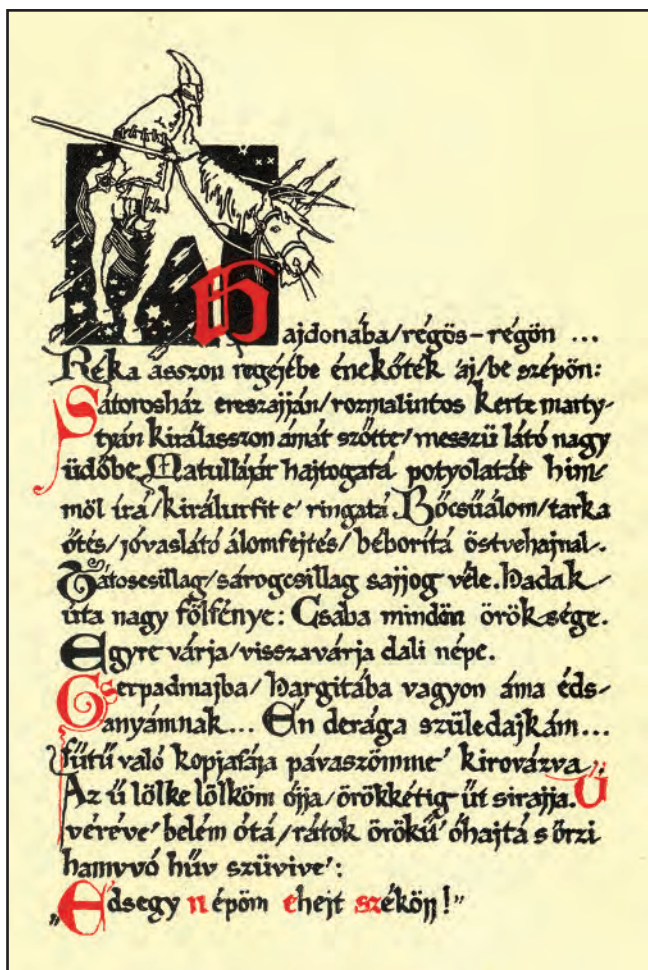 Hajdonába/régös-régön ...
Réka asszon regéjébe énekőték áj/be szépön:
Sátorosház ereszajján/rozmalintos kerte marty-
tyán királasszon ámát szőtte/messzü látó nagy
üdőbe. Matullájár hajtogatá potyolatát him-
möl írá/királurfit e' ringatá. Bőcsűálom/tarka
őtés/jóvaslátó álomfejtés/béborítá östvehajnal.
Tátoscsillag/sárogcsillag sajjog véle. Hadak
úta nagy fölfénye: Csaba mindön öröksége.
Egyre várja/visszavárja dali népe.
Cserpadmajba/Hargitába vagyon áma éds-
anyámnak... Én derága szüledajkám...
Fűtű való kopjafája pávaszömme' kirovázva.
Az ű lölke lölköm ójja/örökkétig űt sirajja. Ű
véréve' belém ótá/rátok örökű' óhajtá s őrzi
hamvvó hűv szüvive':
„Édsegy népöm ehejt székőjj!”